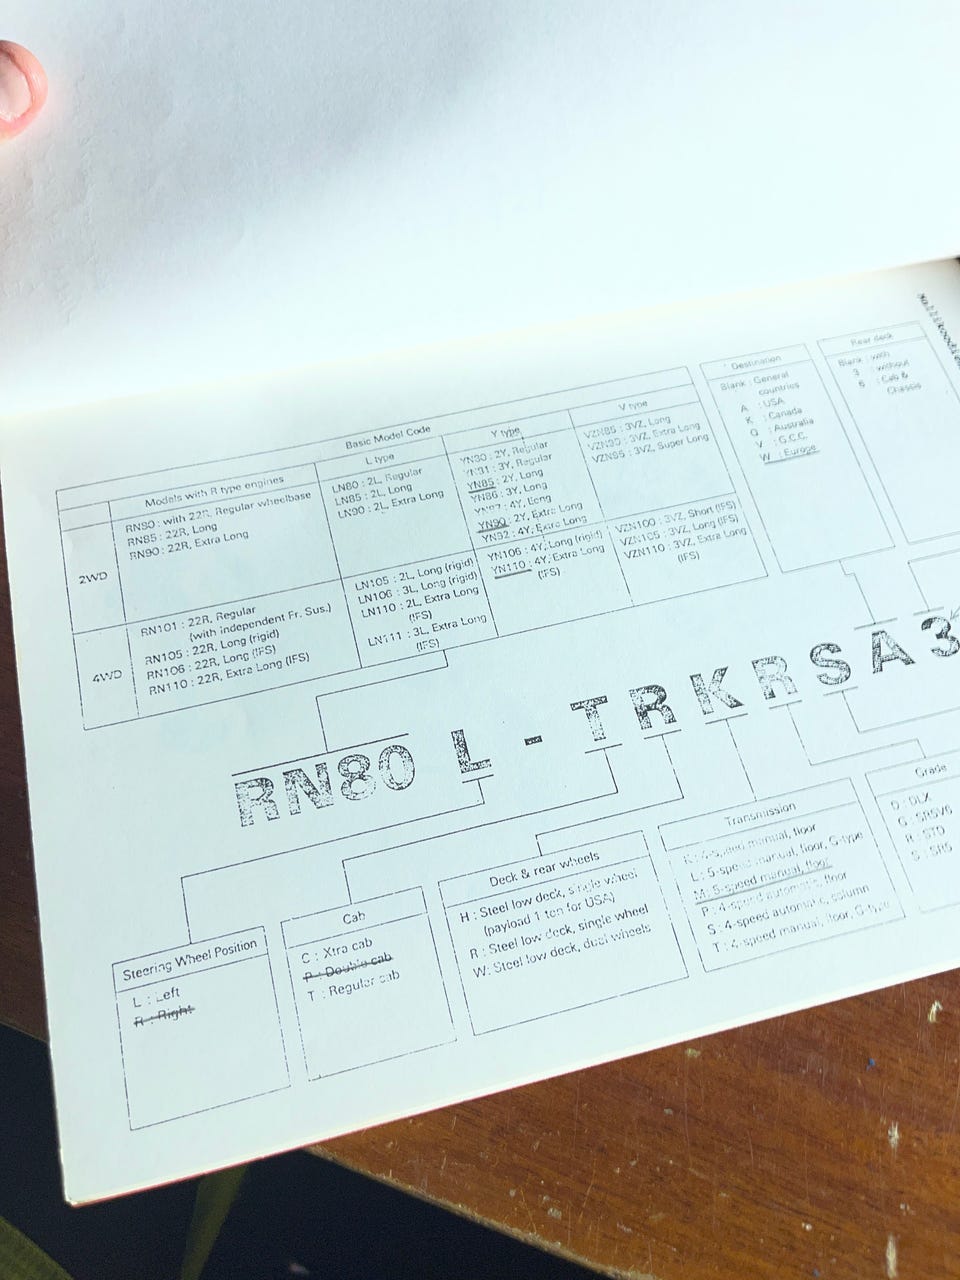 Basic Model Code
Models with R type engines
L type
Y type
V type
2WD
RN80 : with 22R, Regular wheelbase
RN85 : 22R, Long
RN90 : 22R, Extra Long
LN80 : 2L, Regular
LN85 : 2L, Long
LN90 : 2L, Extra Long
YN80 : 2Y, Regular
YN81 : 3Y, Regular
YN85 : 2Y, Long
YN86 : 3Y, Long
YN87 : 4Y, Long
YN90 : 2Y, Extra Long
YN92 : 4Y, Extra Long
VZN85 : 3VZ, Long
VZN90 : 3VZ, Extra Long
VZN95 : 3VZ, Super Long
4WD
RN101 : 22R, Regular
(with independent Fr. Sus.)
RN105 : 22R, Long (rigid)
RN106 : 22R, Long (IFS)
RN110 : 22R, Extra Long (IFS)
LN105 : 2L, Long (rigid)
LN106 : 3L, Long (rigid)
LN110 : 2L, Extra Long
(IFS)
LN111 : 3L, Extra Long
(IFS)
YN106 : 4Y, Long (rigid)
YN110 : 4Y, Extra Long
(IFS)
VZN100 : 3VZ, Short (IFS)
VZN105 : 3VZ, Long (IFS)
VZN110 : 3VZ, Extra Long
(IFS)
Destination
Blank : General
countries
A : USA
K : Canada
Q : Australia
V : G.C.C.
W : Europe
Rear deck
Blank : with
3 : without
6 : Cab &
Chassis
RN80 L - TRKRSA3
Steering Wheel Position
L : Left
R : Right
Cab
C : Xtra cab
P : Double cab
T : Regular cab
Deck & rear wheels
H : Steel low deck, single wheel
(payload 1 ton for USA)
R : Steel low deck, single wheel
W : Steel low deck, dual wheels
Transmission
K : 4-speed manual, floor
L : 5-speed manual, floor, G-type
M : 5-speed manual, floor
P : 4-speed automatic, floor
S : 4-speed automatic, column
T : 4-speed manual, floor, G-type
Grade
D : DLX
G : SR5V6
R : STD
S : SR5